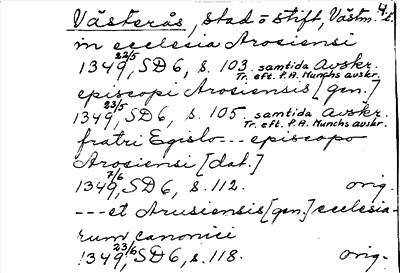 Västerås, stad o stift, Västm. 4.
in ecclesia Arosiensi
1349 22/5, SD 6, s. 103. samtida Avskr.
Tr. eft. P.A. Munchs avskr.
episcopi Arosiensis [gen.]
1349 23/5, SD 6, s. 105. samtida Avskr.
Tr. eft. P.A. Munchs avskr.
fratri Egislo --- episcopo
Arosiensi [dat.]
1349 7/6, SD 6, s. 112. orig.
--- et Arusiensis [gen.] ecclesia-
rum canonici
1349 23/6, SD 6, s. 118. orig.